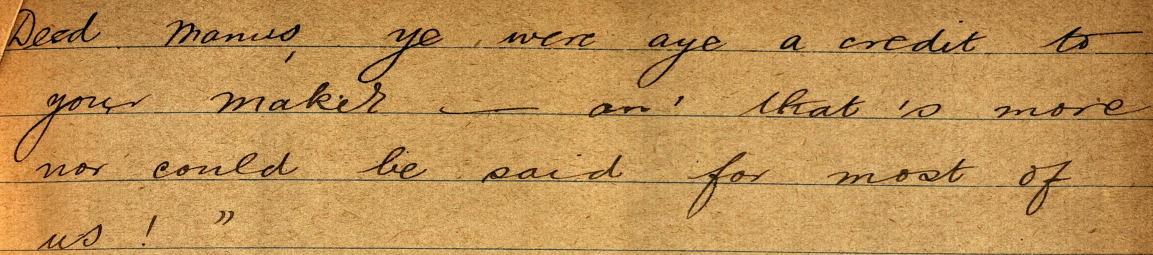 Deed Manus, ye were aye a credit to
your maker — an' that 's more
nor could be said for most of
us ! "